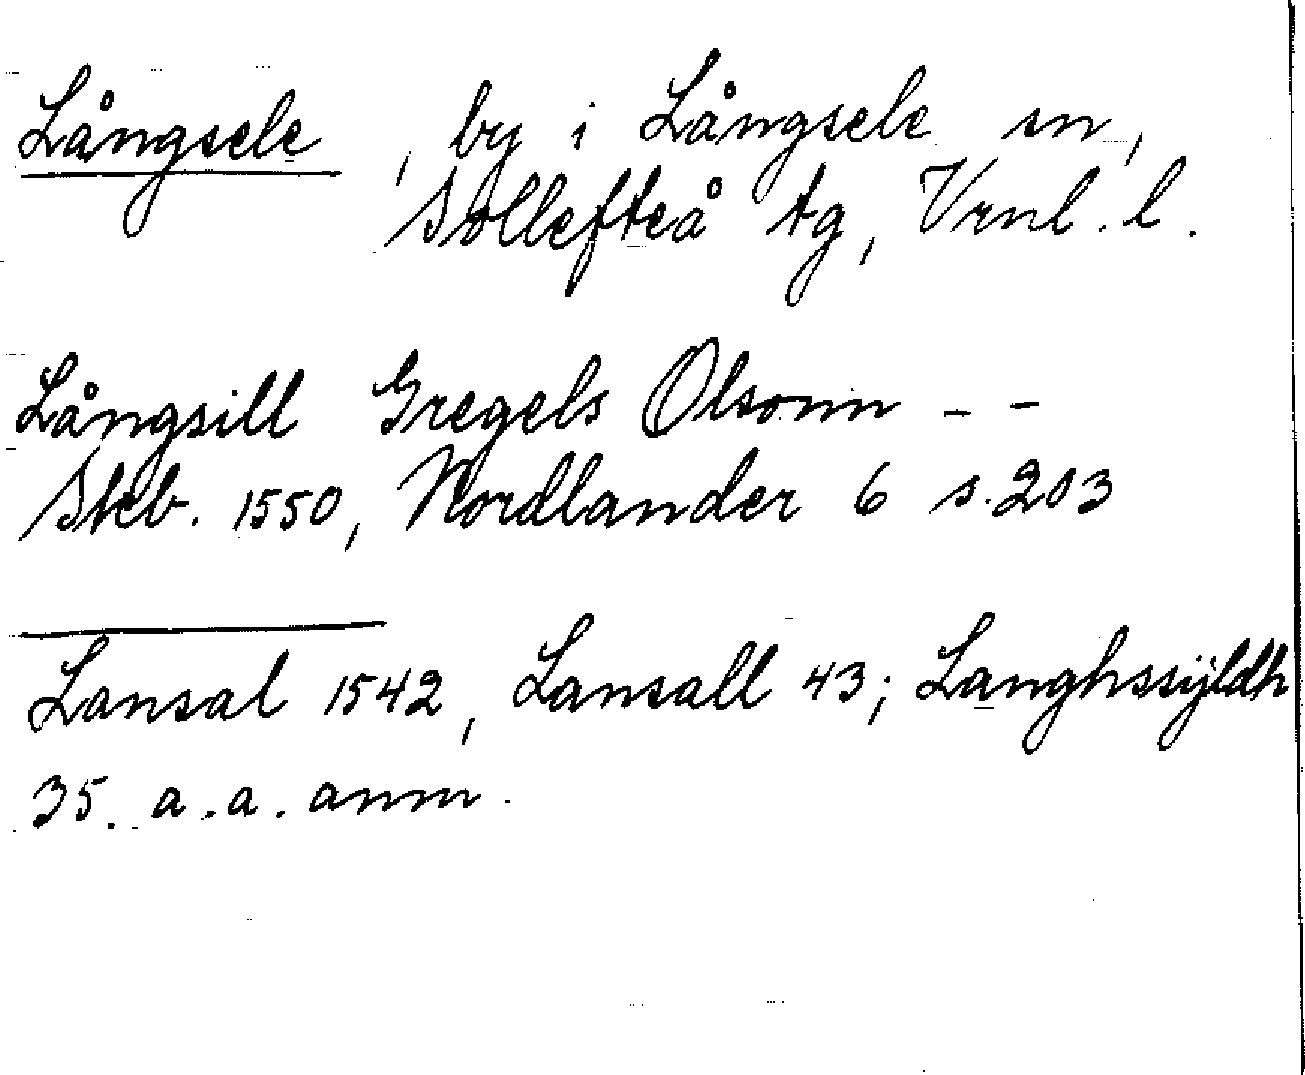 Långsele, by i Långsele sn,
Sollefteå tg, Vrnl. l.
Långsill Gregels Olsonn - -
Skb. 1550, Nordlander 6 s. 203
Lansal 1542, Lansall 43; Langhssÿldh
35. a. a. anm.